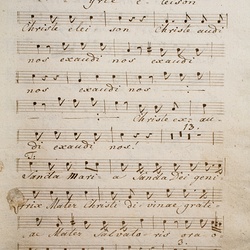 Kyrie e- leison
Christe elei- son Christe audi
nos exaudi nos
nos exaudi nos
Christe ex: au-
di exaudi nos. 13.
Ti:
Sancta Mari- a Sancta Dei geni
trix Mater Christi di- vinae grati-
ae Mater Salvato- ris ora o